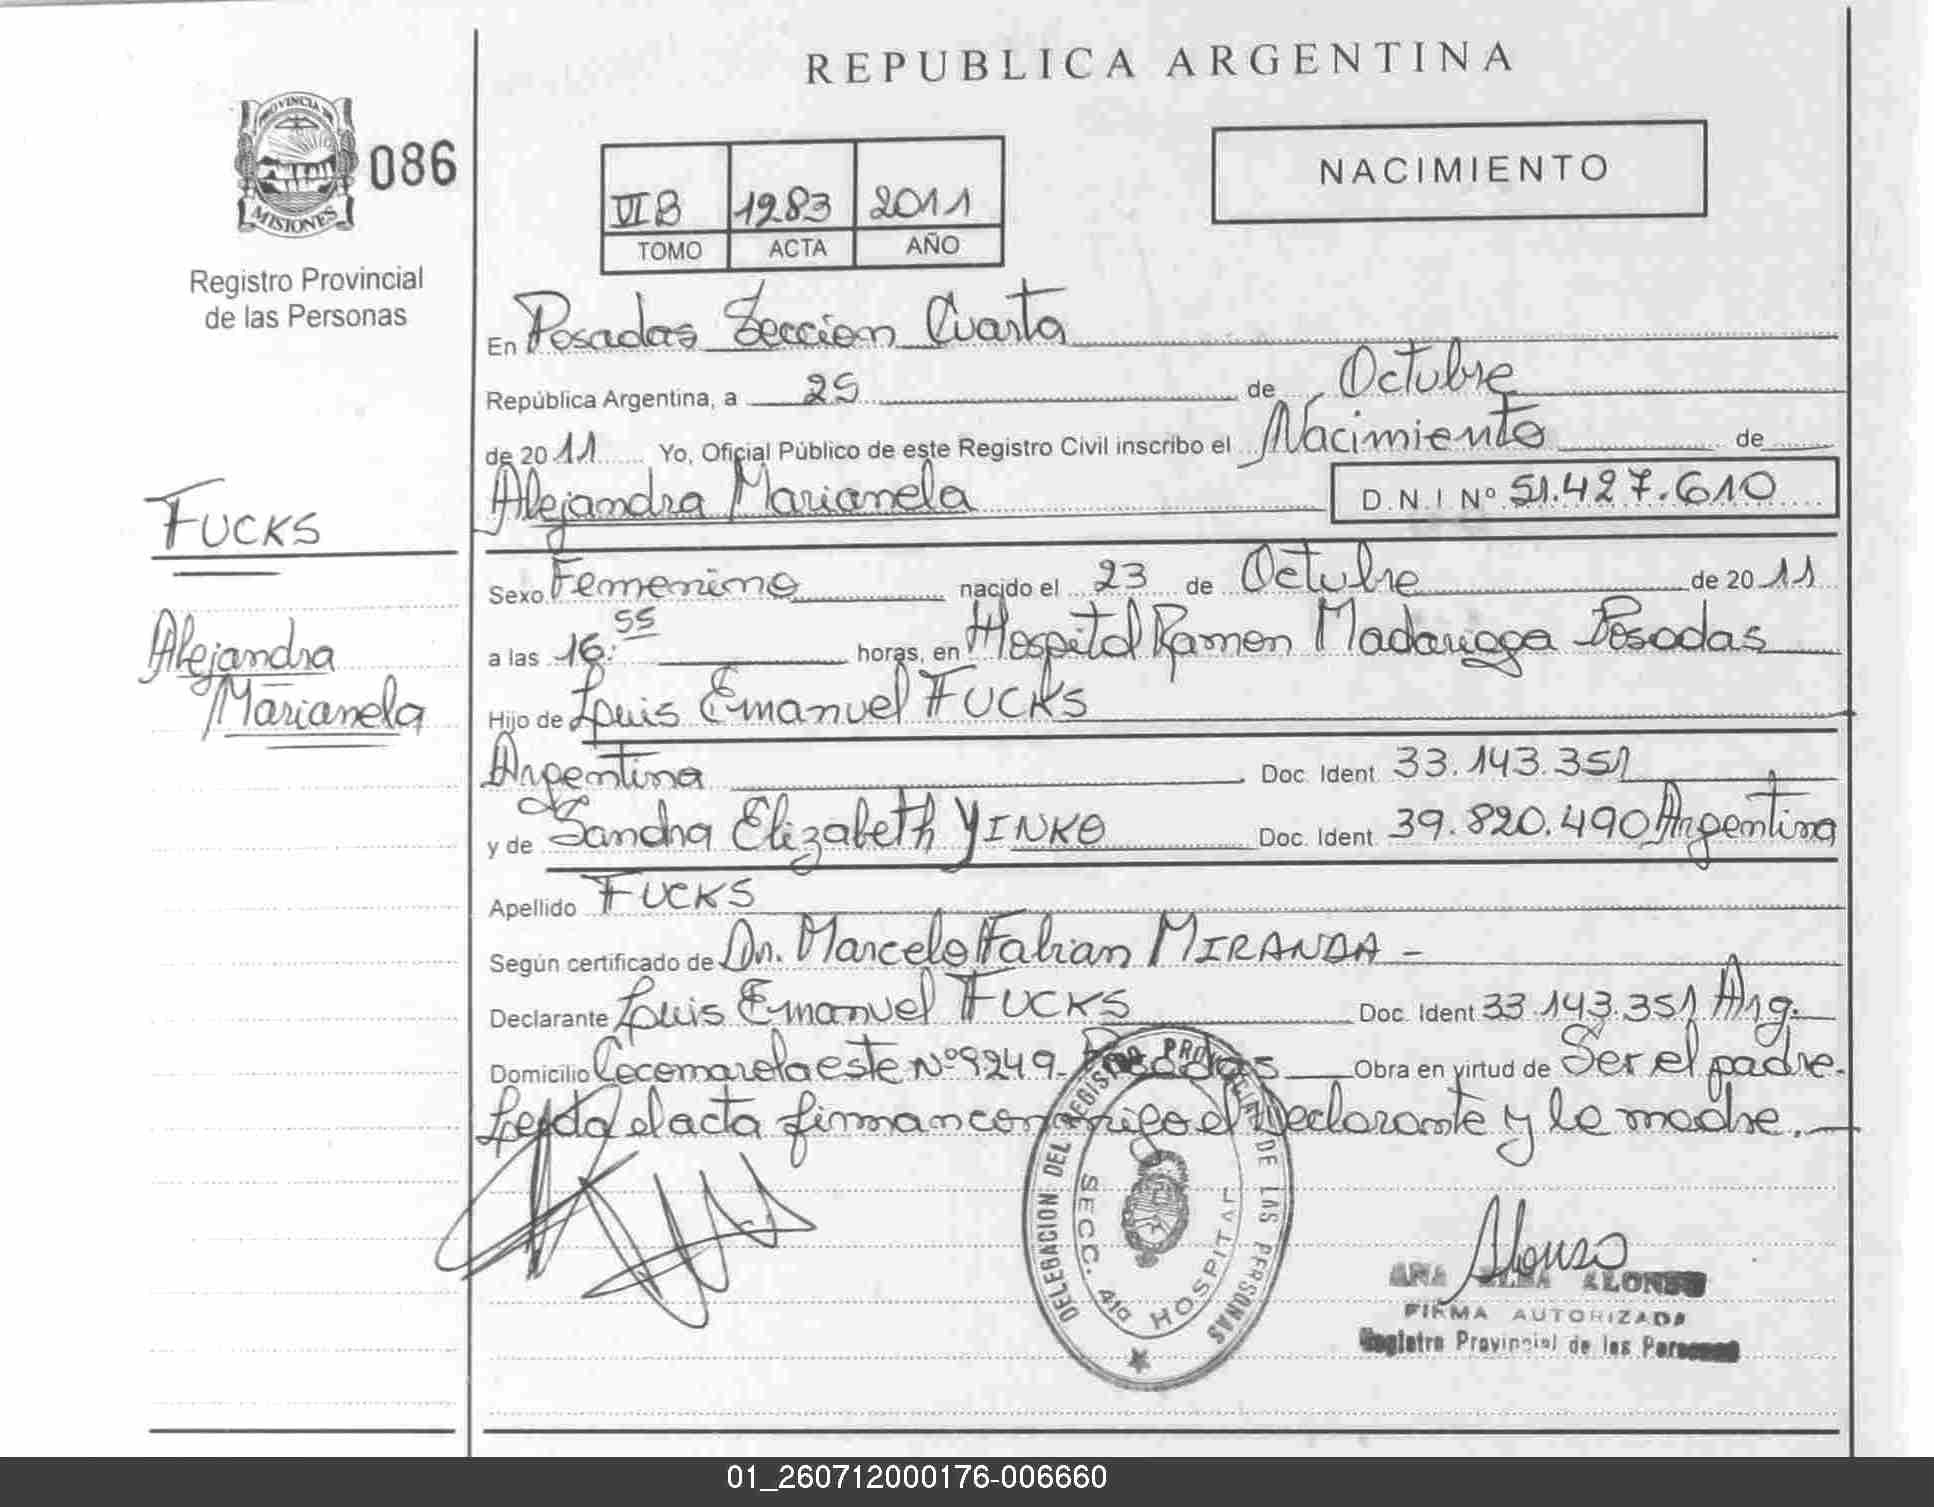 REPUBLICA ARGENTINA
PROVINCIA DE
MISIONES
086
Registro Provincial
de las Personas
VI B 1283 2011
TOMO ACTA AÑO
NACIMIENTO
En Posadas Seccion Cuarta
República Argentina, a 25 de Octubre
de 2011 Yo, Oficial Público de este Registro Civil inscribo el Nacimiento de
Alejandra Marianela D.N.I Nº 51.427.610
FUCKS
Alejandra
Marianela
Sexo Femenino nacido el 23 de Octubre de 2011
a las 16:55 horas, en Hospital Ramon Madariaga Posadas
Hijo de Luis Emanuel FUCKS
Argentina Doc. Ident. 33.143.351
y de Sandra Elizabeth YINKO Doc. Ident. 39.820.490 Argentina
Apellido FUCKS
Según certificado de Dr. Marcelo Fabian MIRANDA -
Declarante Luis Emanuel FUCKS Doc. Ident 33.143.351 Arg.
Domicilio Cocomarola este Nº 9249 Posadas Obra en virtud de Ser el padre.
Leida el acta firman conmigo el Declarante y la madre.
DELEGACION DEL REGISTRO PROVINCIAL DE LAS PERSONAS
SECC. 4ta HOSPITAL
Alonso
ANA ALONSO
FIRMA AUTORIZADA
Registro Provincial de las Personas
01_260712000176-006660